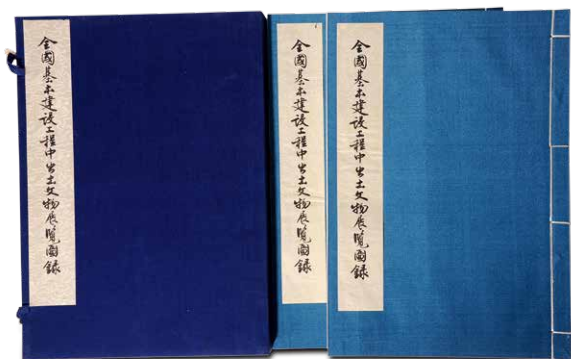 全國基本建設工程中出土文物展覽圖録
全國基本建設工程中出土文物展覽圖録
全國基本建設工程中出土文物展覽圖録